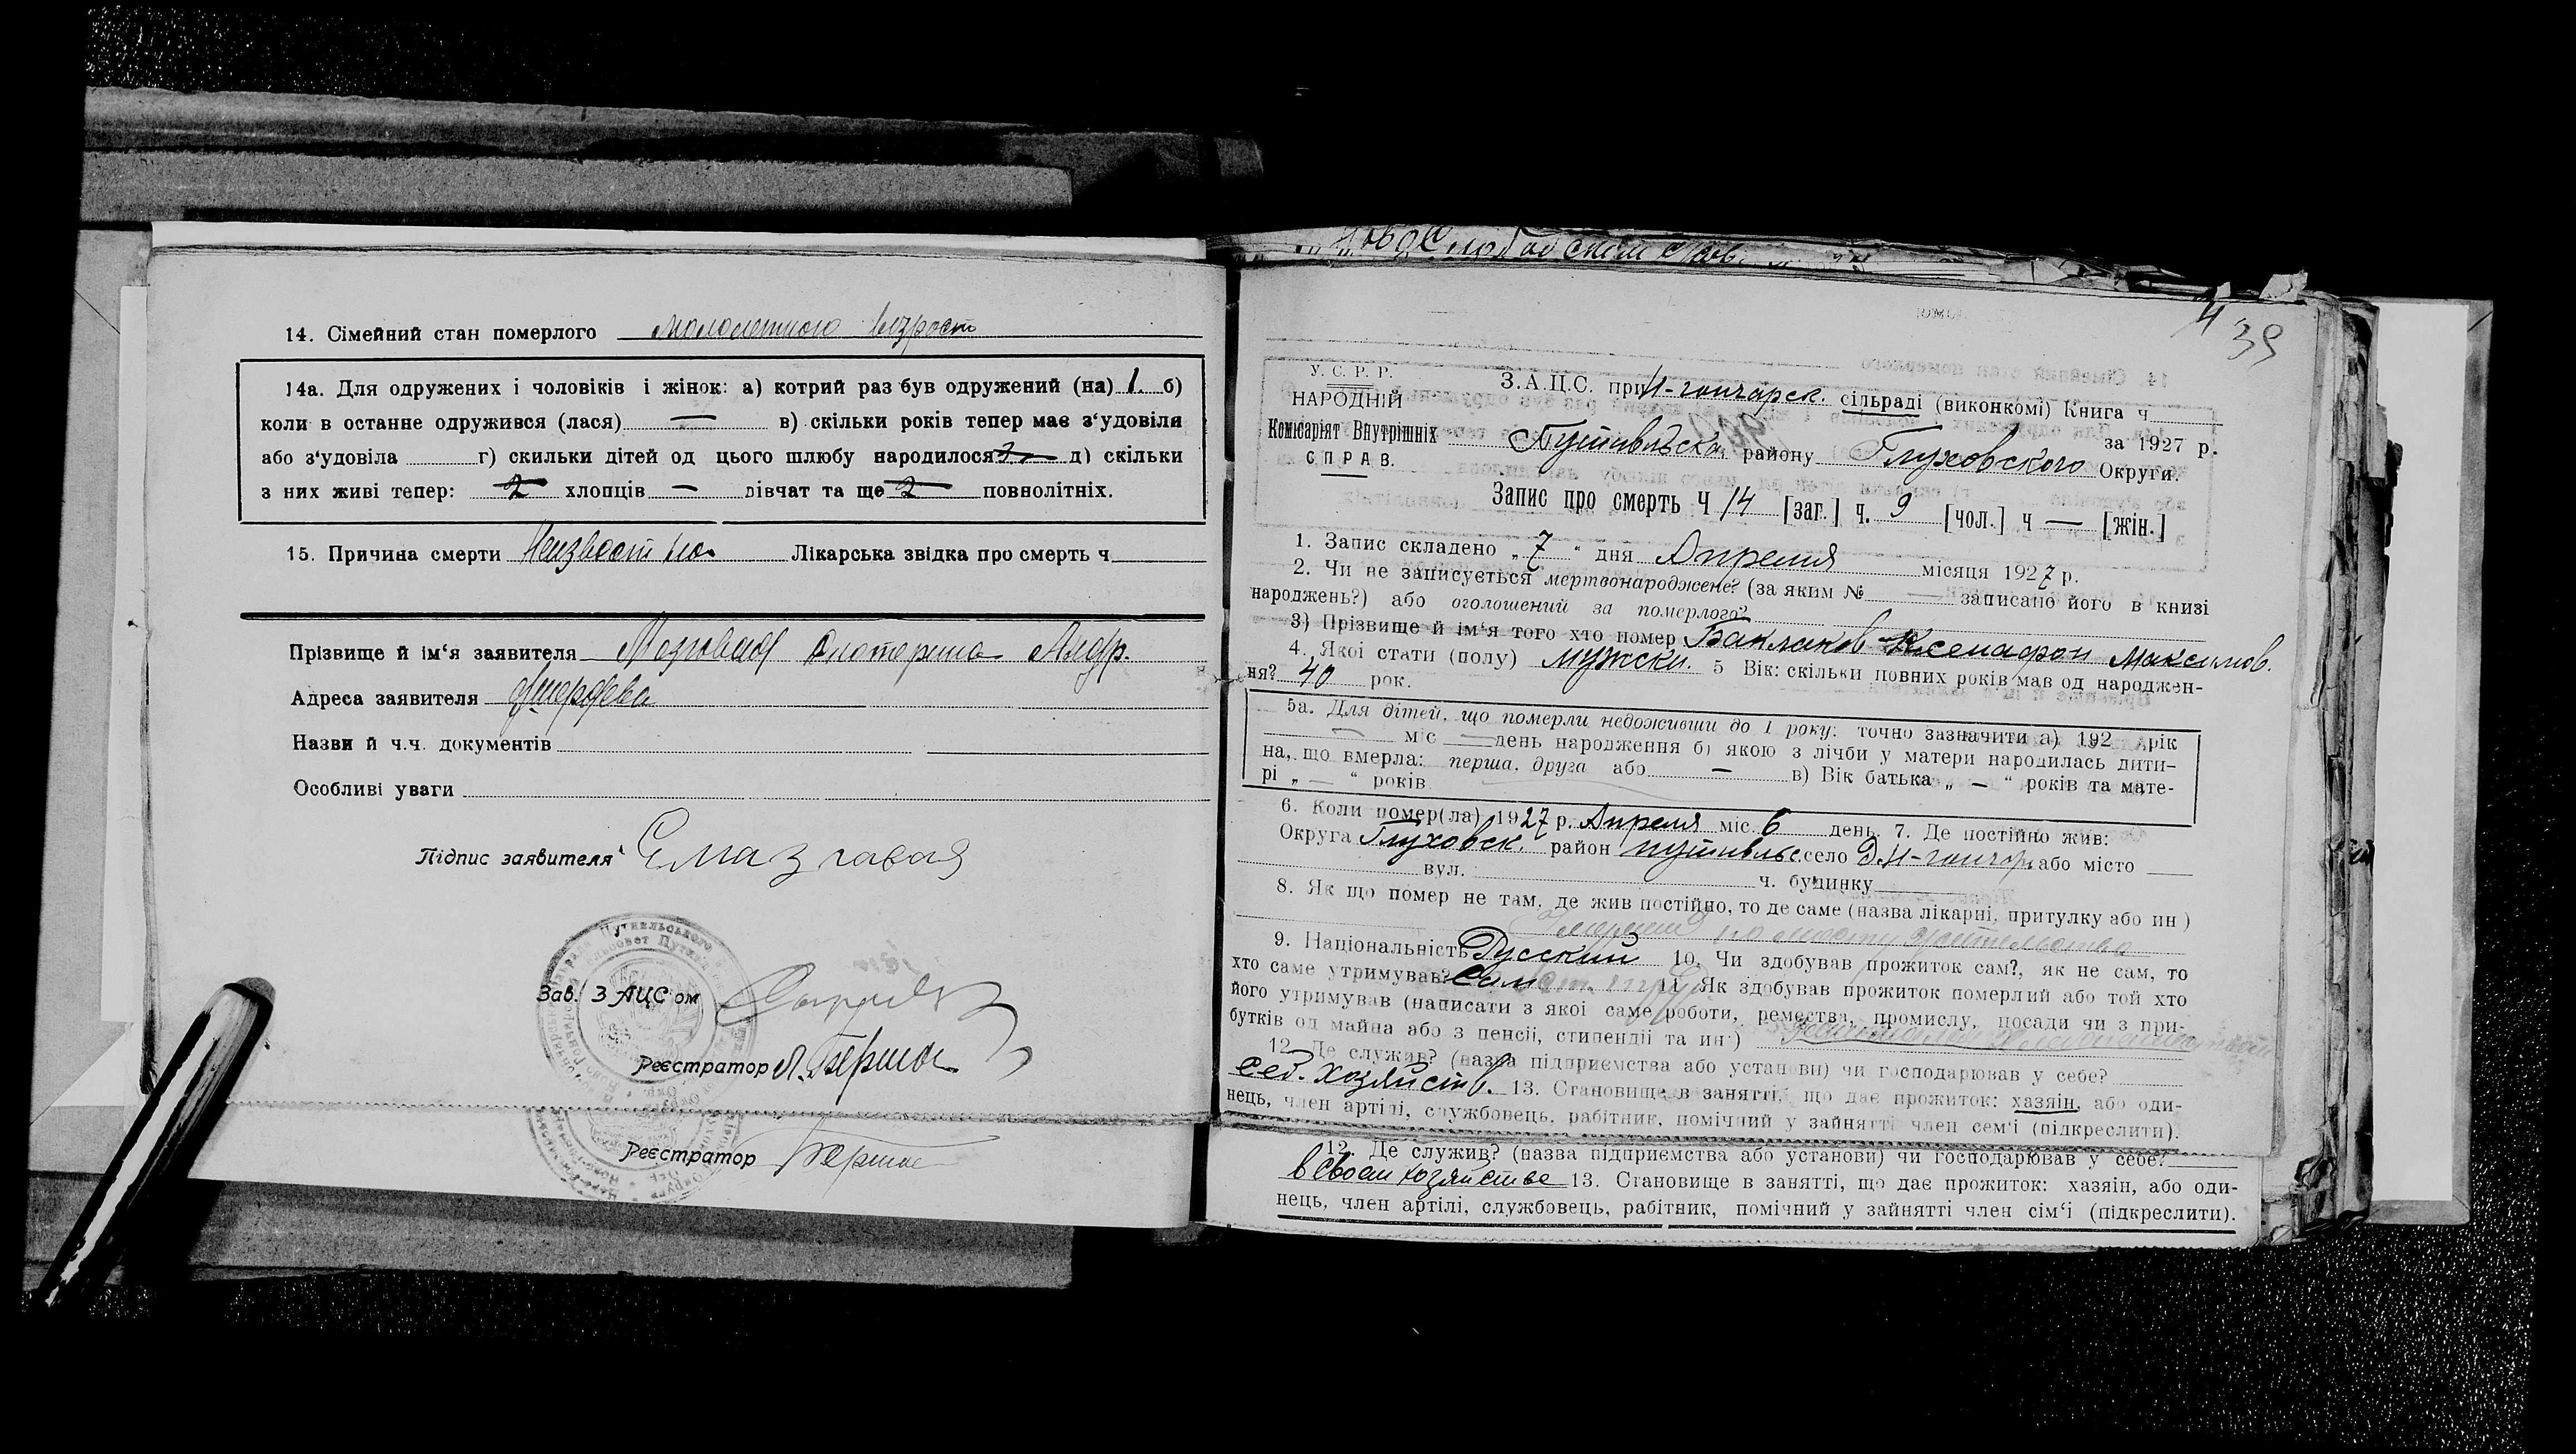 14. Сімейний стан померлого малолетнього возраст
14а. Для одружених і чоловіків і жінок: а) котрий раз був одружений (на) 1. б)
коли в останне одружився (лася) — в) скільки років тепер має з‘удовіли
або з‘удовіла г) скильки дітей од цього шлюбу народилося 3 д) скільки
з них живі тепер: 2 хлопців — дівчат та ще 2 повнолітніх.
15. Причина смерти Неизвестно Лікарська звідка про смерть ч
Прізвище й ім‘я заявителя Екатерина
Адреса заявителя
Назви й ч.ч. документів
Особливі уваги
Підпис заявителя
Зав. ЗАЦС ом
Реєстратор
Реєстратор
39
У. С. Р. Р.
НАРОДНІЙ
Комісаріят Внутрішніх
СПРАВ.
З.А.Ц.С. при Н-гончарск. сільраді (виконкомі) Книга ч
за 1927 р.
Путивльска району Глуховского Округи.
Запис про смерть Ч 14 [заг.] ч. 9 [чол.] ч — [жін.]
1. Запис складено „ 7 “ дня Апреля місяця 1927 р.
2. Чи не записується мертвонароджене? (за яким № — записано його в книзі
народжень?) або оголошений за померлого?
3) Прізвище й ім‘я того хто помер Баклаков Ксенафон Максимов.
4. Якої стати (полу) мужски. 5 Вік: скільки повних років мав од народжен-
ня? 40 рок.
5а. Для дітей, що померли недоживши до 1 року: точно зазначити а) 192 рік
— міс — день народження б) якою з лічби у матери народилась дити-
на, що вмерла: перша, друга або — в) Вік батька „ — “ років та мате-
рі „ — “ років
6. Коли помер(ла) 1927 р. Апреля міс. 6 день. 7. Де постійно жив:
Округа Глуховск. район путивльс село Д. Н-гончар. або місто
вул. ч. будинку
8. Як що помер не там, де жив постійно, то де саме (назва лікарні, притулку або ин)
9. Національність Русский 10. Чи здобував прожиток сам?, як не сам, то
хто саме утримував? Сам 11. Як здобував прожиток померлий або той хто
його утримував (написати з якоі саме роботи, ремества, промислу, посади чи з при-
бутків од майна або з пенсії, стипендії та ин.)
12 Де служив? (назва підприємства або установи) чи господарював у себе?
хозяйств. 13. Становище в занятті, що дає прожиток: хазяін, або оди-
нець, член артілі, службовець, рабітник, помічний у зайнятті член сем‘ї (підкреслити).
12. Де служив? (назва підприємства або установи) чи господарював у себе?
в своем хозяйстве 13. Становище в занятті, що дає прожиток: хазяін, або оди-
нець, член артілі, службовець, рабітник, помічний у зайнятті член сім‘ї (підкреслити).